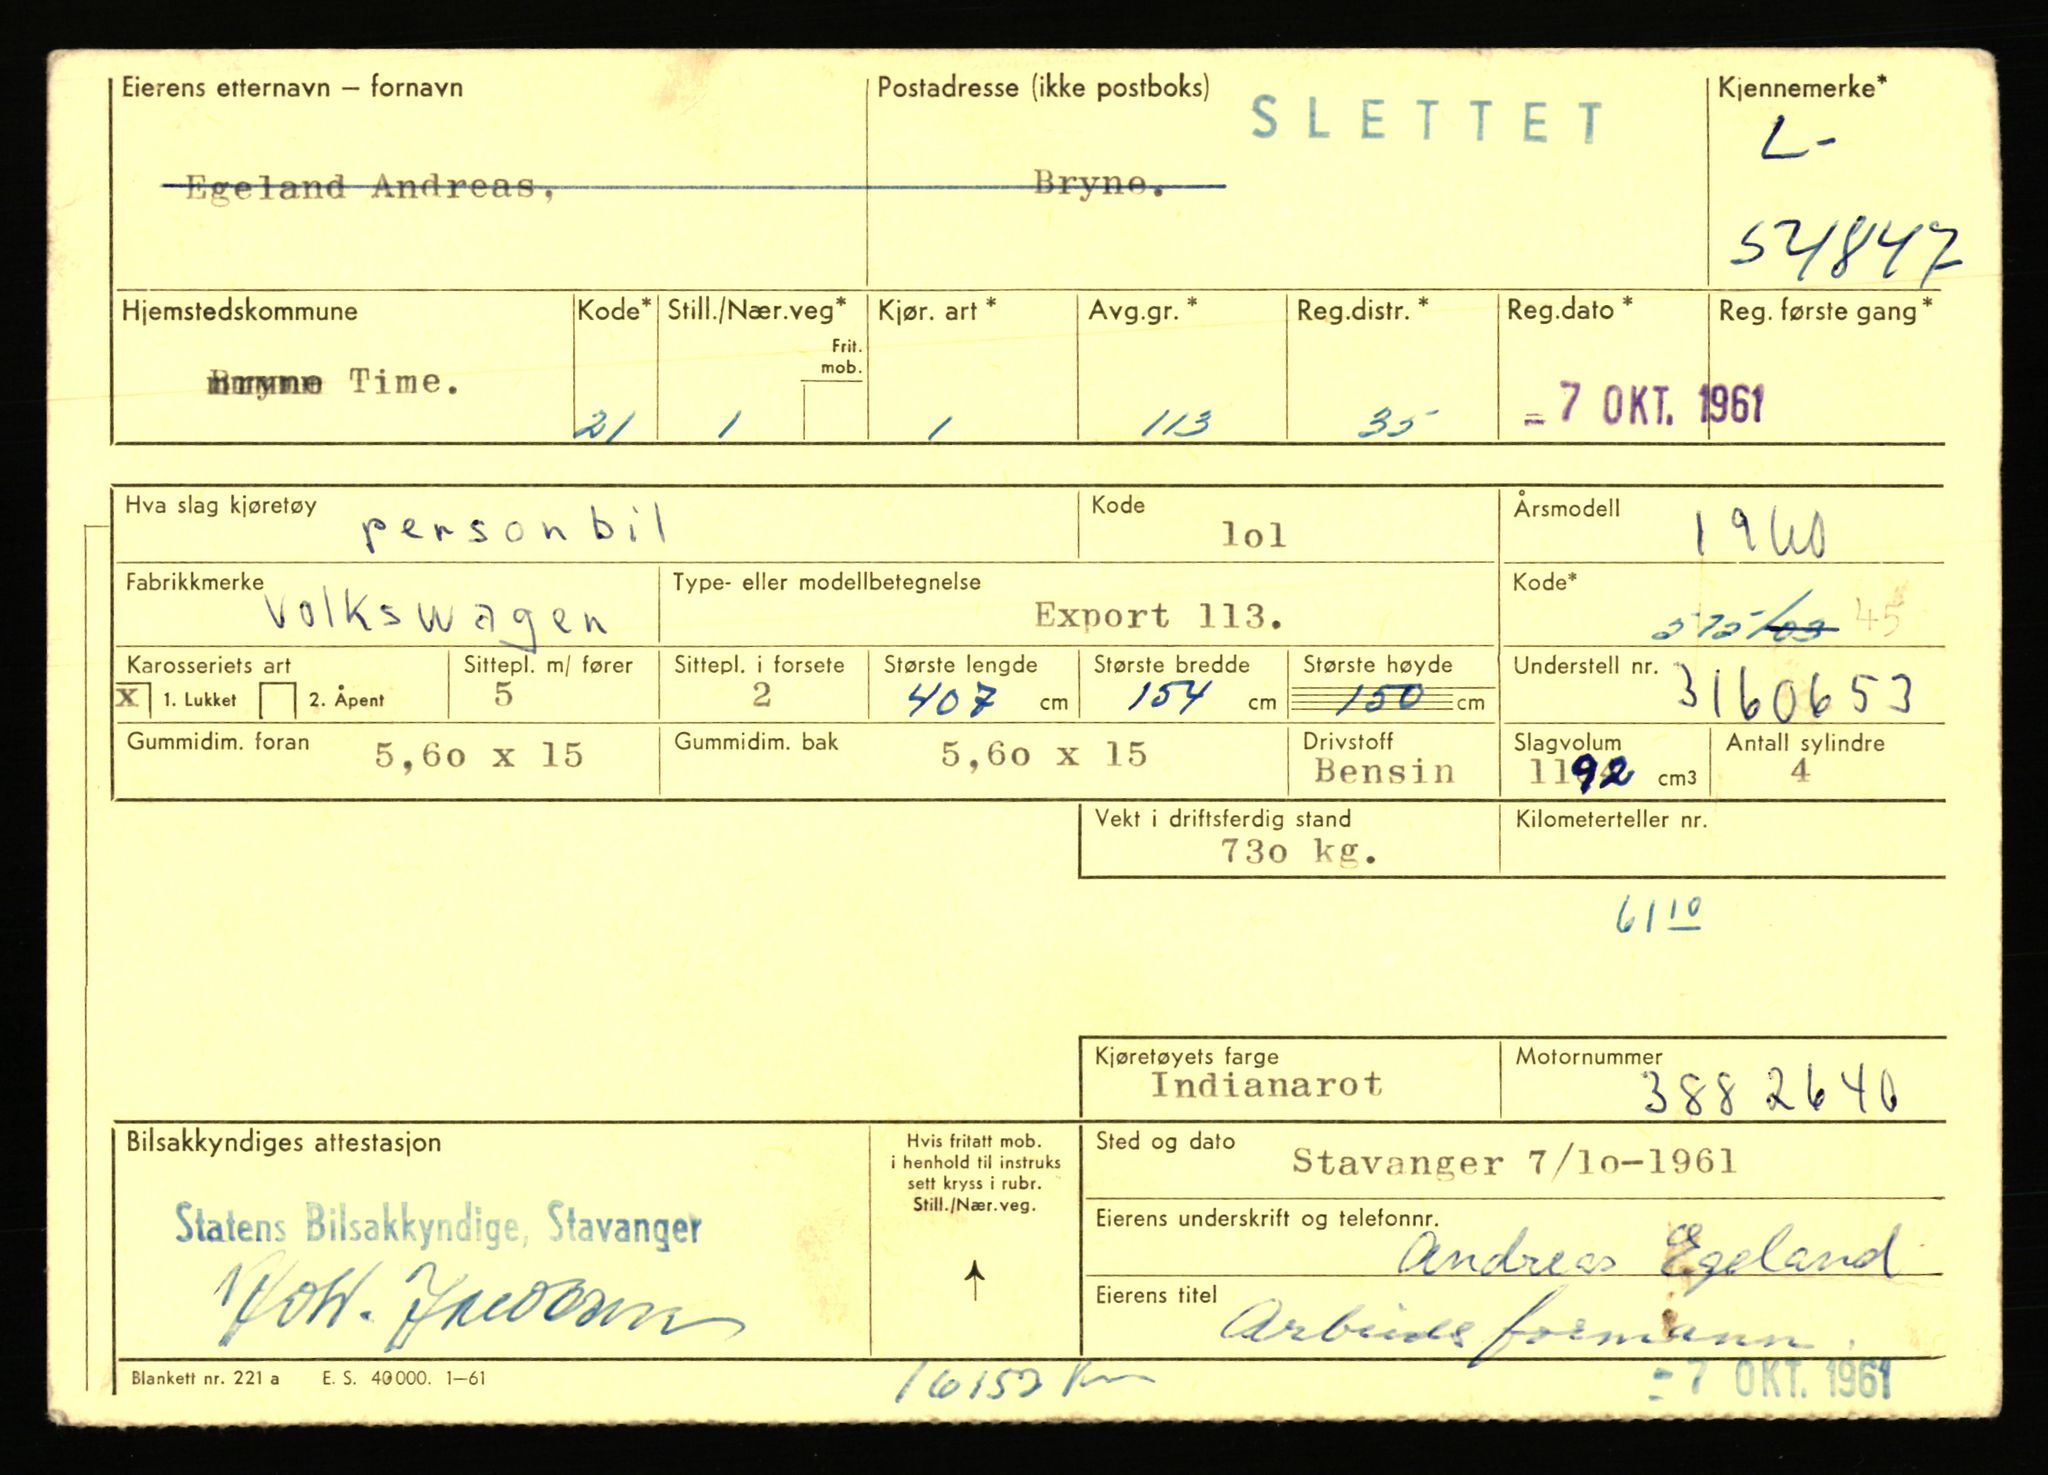 Eierens etternavn – fornavn
Postadresse (ikke postboks)
SLETTET
Kjennemerke*
L-
54847
Egeland Andreas,
Bryne.
Hjemstedskommune
Kode*
Still./Nær.veg*
Kjør. art *
Avg.gr. *
Reg.distr. *
Reg.dato *
Reg. første gang *
Frit.
mob.
Bryne Time.
21
1
1
113
35
- 7 OKT. 1961
Hva slag kjøretøy
personbil
Kode
lol
Årsmodell
1960
Fabrikkmerke
Volkswagen
Type- eller modellbetegnelse
Export 113.
Kode*
45
Karosseriets art
X 1. Lukket 2. Åpent
Sittepl. m/ fører
5
Sittepl. i forsete
2
Største lengde
407 cm
Største bredde
154 cm
Største høyde
150 cm
Understell nr.
3160653
Gummidim. foran
5,6o x 15
Gummidim. bak
5,6o x 15
Drivstoff
Bensin
Slagvolum
1192 cm3
Antall sylindre
4
Vekt i driftsferdig stand
73o kg.
Kilometerteller nr.
61 10
Kjøretøyets farge
Indianarot
Motornummer
3882640
Bilsakkyndiges attestasjon
Statens Bilsakkyndige, Stavanger
Hvis fritatt mob.
i henhold til instruks
sett kryss i rubr.
Still./Nær.veg.
Sted og dato
Stavanger 7/1o-1961
Eierens underskrift og telefonnr.
Andreas Egeland
Eierens titel
Arbeidsformann.
Blankett nr. 221 a E. S. 40000. 1–61
16152 Km
- 7 OKT. 1961